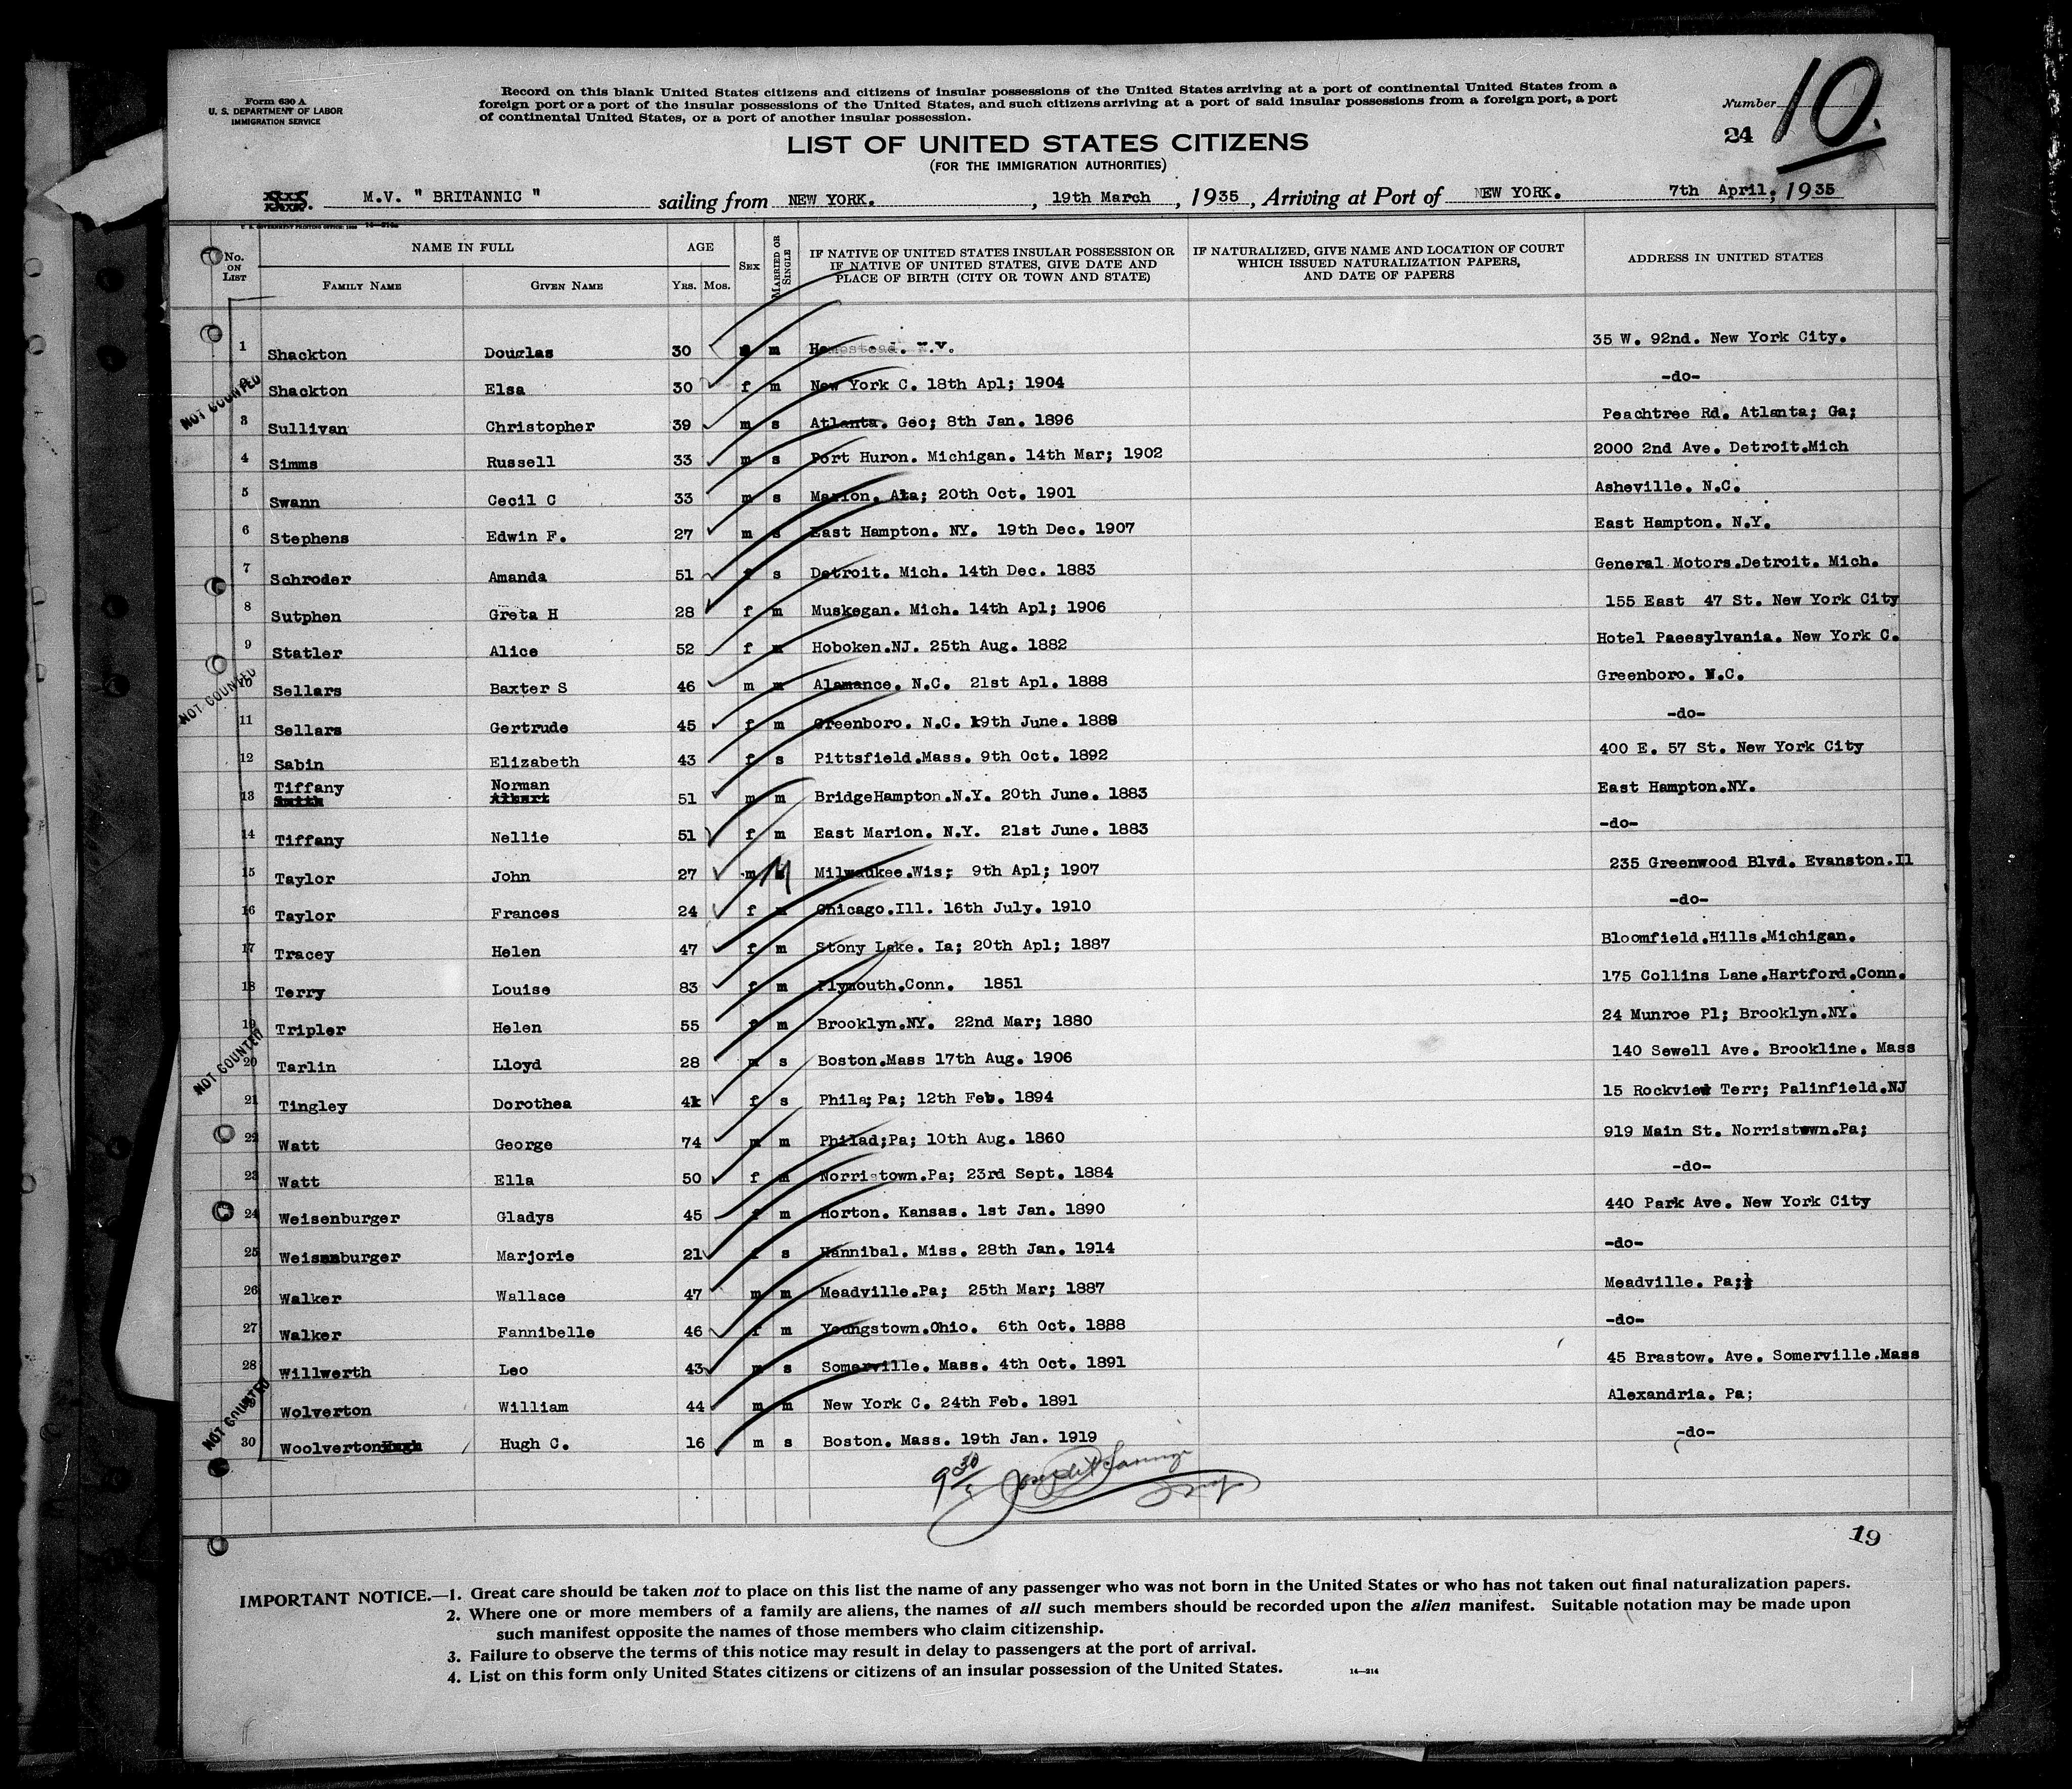 Form 630 A
U. S. DEPARTMENT OF LABOR
IMMIGRATION SERVICE
Record on this blank United States citizens and citizens of insular possessions of the United States arriving at a port of continental United States from a
foreign port or a port of the insular possessions of the United States, and such citizens arriving at a port of said insular possessions from a foreign port, a port
of continental United States, or a port of another insular possession.
Number 10.
24
LIST OF UNITED STATES CITIZENS
(FOR THE IMMIGRATION AUTHORITIES)
M.V. " BRITANNIC " sailing from NEW YORK. , 19th March , 1935 , Arriving at Port of NEW YORK. 7th April; 1935
U. S. GOVERNMENT PRINTING OFFICE: 14—214a
No. ON LIST NAME IN FULL AGE SEX MARRIED OR SINGLE IF NATIVE OF UNITED STATES INSULAR POSSESSION OR IF NATIVE OF UNITED STATES, GIVE DATE AND PLACE OF BIRTH (CITY OR TOWN AND STATE) IF NATURALIZED, GIVE NAME AND LOCATION OF COURT WHICH ISSUED NATURALIZATION PAPERS, AND DATE OF PAPERS ADDRESS IN UNITED STATES
FAMILY NAME GIVEN NAME YRS. MOS.
1 Shackton Douglas 30 m Hempstead. N.Y. 35 W. 92nd. New York City.
Shackton Elsa 30 f m New York C. 18th Apl; 1904 -do-
NOT COUNTED
3 Sullivan Christopher 39 m s Atlanta. Geo; 8th Jan. 1896 Peachtree Rd. Atlanta; Ga;
4 Simms Russell 33 m s Port Huron. Michigan. 14th Mar; 1902 2000 2nd Ave. Detroit.Mich
5 Swann Cecil C 33 m s Marion. Ala; 20th Oct. 1901 Asheville. N.C.
6 Stephens Edwin F. 27 m s East Hampton. NY. 19th Dec. 1907 East Hampton. N.Y.
7 Schroder Amanda 51 f s Detroit. Mich. 14th Dec. 1883 General Motors.Detroit. Mich.
8 Sutphen Greta H 28 f m Muskegan. Mich. 14th Apl; 1906 155 East 47 St. New York City
9 Statler Alice 52 f m Hoboken.NJ. 25th Aug. 1882 Hotel Paeesylvania. New York C.
10 Sellars Baxter S 46 m m Alamance. N.C. 21st Apl. 1888 Greenboro. N.C.
NOT COUNTED
11 Sellars Gertrude 45 f m Greenboro. N.C. 19th June. 1889 -do-
12 Sabin Elizabeth 43 f s Pittsfield.Mass. 9th Oct. 1892 400 E. 57 St. New York City
13 Tiffany Smith Norman Albert 51 m m BridgeHampton.N.Y. 20th June. 1883 East Hampton.NY.
14 Tiffany Nellie 51 f m East Marion. N.Y. 21st June. 1883 -do-
15 Taylor John 27 m M Milwaukee.Wis; 9th Apl; 1907 235 Greenwood Blvd. Evanston.Il
16 Taylor Frances 24 f m Chicago.Ill. 16th July. 1910 -do-
17 Tracey Helen 47 f m Stony Lake. Ia; 20th Apl; 1887 Bloomfield.Hills.Michigan.
18 Terry Louise 83 f m Plymouth.Conn. 1851 175 Collins Lane.Hartford.Conn.
19 Tripler Helen 55 f m Brooklyn.NY. 22nd Mar; 1880 24 Munroe Pl; Brooklyn.NY.
20 Tarlin Lloyd 28 m s Boston.Mass 17th Aug. 1906 140 Sewell Ave. Brookline. Mass
NOT COUNTED
21 Tingley Dorothea 41 f s Phila; Pa; 12th Feb. 1894 15 Rockview Terr; Palinfield.NJ
22 Watt George 74 m m Philad;Pa; 10th Aug. 1860 919 Main St. Norristown.Pa;
23 Watt Ella 50 f m Norristown.Pa; 23rd Sept. 1884 -do-
24 Weisenburger Gladys 45 f m Horton. Kansas. 1st Jan. 1890 440 Park Ave. New York City
25 Weisenburger Marjorie 21 f s Hannibal. Miss. 28th Jan. 1914 -do-
26 Walker Wallace 47 m m Meadville.Pa; 25th Mar; 1887 Meadville. Pa;
27 Walker Fannibelle 46 f m Youngstown.Ohio. 6th Oct. 1888 -do-
28 Willwerth Leo 43 m s Somerville. Mass. 4th Oct. 1891 45 Brastow. Ave. Somerville.Mass
Wolverton William 44 m m New York C. 24th Feb. 1891 Alexandria. Pa;
NOT COUNTED
30 Woolverton Hugh Hugh C. 16 m s Boston. Mass. 19th Jan. 1919 -do-
9 30
19
IMPORTANT NOTICE.—1. Great care should be taken not to place on this list the name of any passenger who was not born in the United States or who has not taken out final naturalization papers.
2. Where one or more members of a family are aliens, the names of all such members should be recorded upon the alien manifest. Suitable notation may be made upon
such manifest opposite the names of those members who claim citizenship.
3. Failure to observe the terms of this notice may result in delay to passengers at the port of arrival.
4. List on this form only United States citizens or citizens of an insular possession of the United States.
14—214